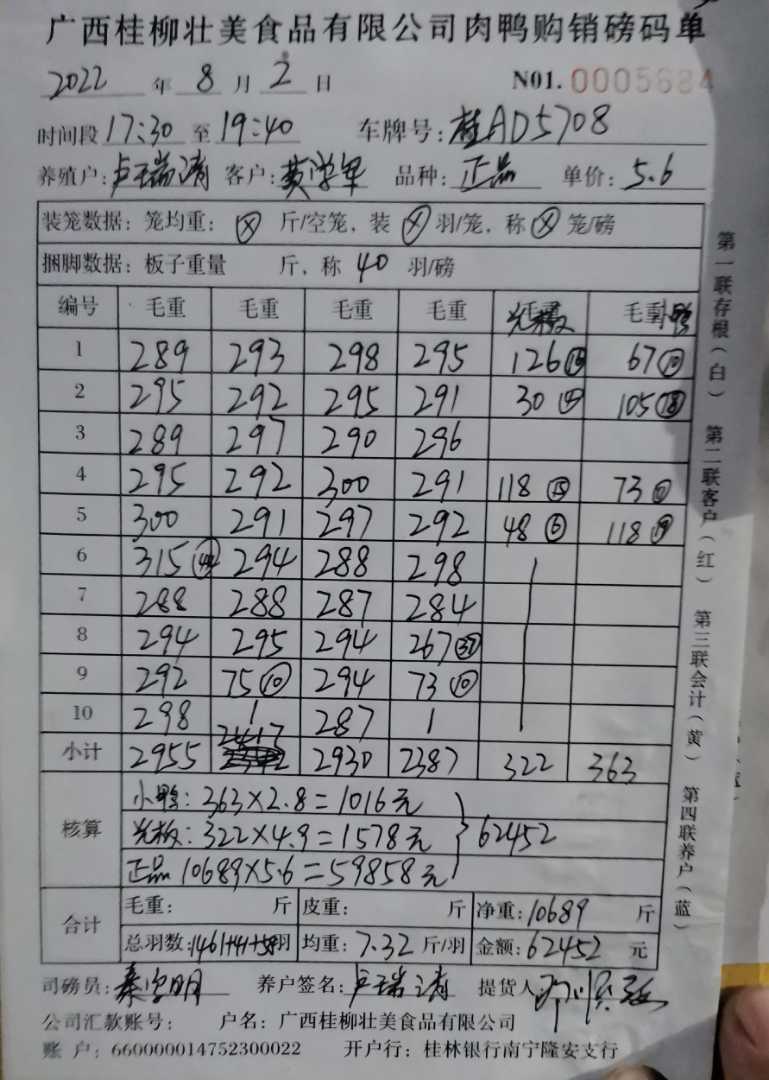 广西桂柳壮美食品有限公司肉鸭购销磅码单
2022 年 8 月 2 日 N01. 0005684
时间段 17:30 至 19:40 车牌号: 桂AD5708
养殖户: 卢瑞清 客户: 黄学军 品种: 正品 单价: 5.6
装笼数据: 笼均重: ⊗ 斤/空笼, 装 ⊗ 羽/笼, 称 ⊗ 笼/磅
捆脚数据: 板子重量 斤, 称 40 羽/磅
编号 毛重 毛重 毛重 毛重 光板 毛重 小鸭
1 289 293 298 295 126 67
2 295 292 295 291 30 105 ⑱
3 289 297 290 296
4 295 292 300 291 118 ⑮ 73
5 300 291 297 292 48 ⑥ 118 ⑲
6 315 294 288 298
7 288 288 287 284
8 294 295 294 267 ㊲
9 292 75 ⑩ 294 73 ⑩
10 298 287
小计 2955 2417 2930 2387 322 363
核算
小鸭: 363×2.8=1016元
光板: 322×4.9=1578元
正品 10689×5.6=59858元
62452
合计
毛重: 斤 皮重: 斤 净重: 10689 斤
总羽数: 1461+41+58羽 均重: 7.32 斤/羽 金额: 62452 元
司磅员: 秦学明 养户签名: 卢瑞清 提货人:
公司汇款账号: 户名: 广西桂柳壮美食品有限公司
账 户: 660000014752300022 开户行: 桂林银行南宁隆安支行
第一联存根(白)
第二联客户(红)
第三联会计(黄)
第四联养户(蓝)